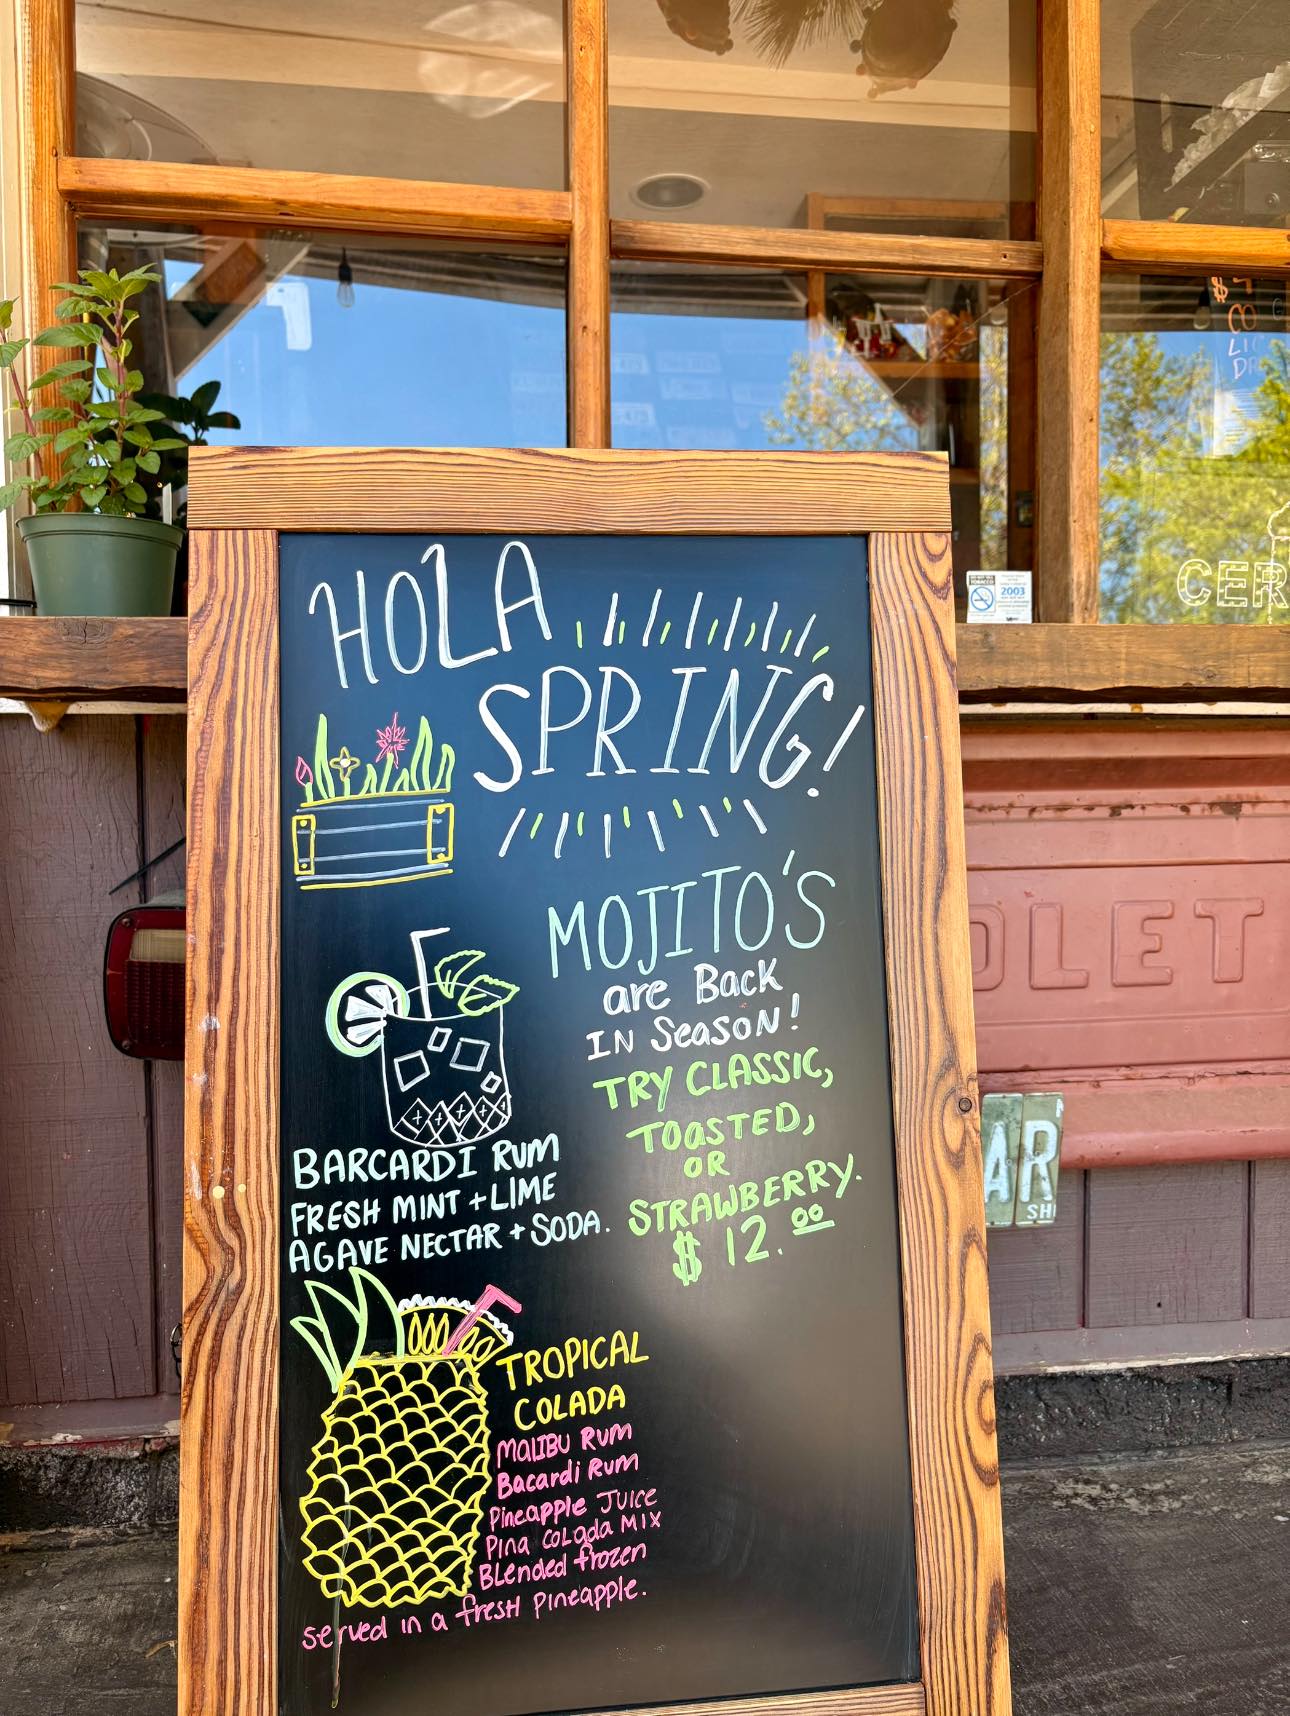 HOLA
SPRING!
MOJITO'S
are Back
IN SeasoN!
TRY CLASSIC,
TOaSTED,
OR
STRAWBERRY.
$12.00
BARCARDI RUM
FRESH MINT + LIME
AGAVE NECTAR + SODA.
TROPICAL
COLADA
MALIBU RUM
Bacardi RUM
Pineapple JUICE
PINA COLada MIX
BLended frozen
served in a fresH Pineapple.
2003
CER
OLET
AR
SH